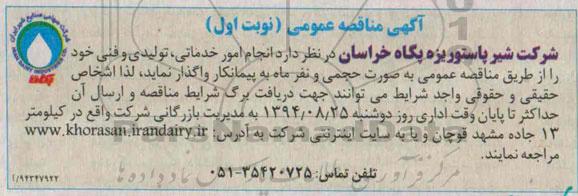 آگهی مناقصه عمومی (نوبت اول)
شرکت شیر پاستوریزه پگاه خراسان در نظر دارد انجام امور خدماتی، تولیدی و فنی خود
را از طریق مناقصه عمومی به صورت حجمی و نفر ماه به پیمانکار واگذار نماید، لذا اشخاص
حقیقی و حقوقی واجد شرایط می توانند جهت دریافت برگ شرایط مناقصه و ارسال آن
حداکثر تا پایان وقت اداری روز دوشنبه ۱۳۹۴/۰۸/۲۵ به مدیریت بازرگانی شرکت واقع در کیلومتر
۱۳ جاده مشهد قوچان و یا به سایت اینترنتی شرکت به آدرس: www.khorasan.irandairy.ir
مراجعه نمایند.
تلفن تماس: ۳۵۴۲۰۷۲۵-۰۵۱
۹۴۲۴۷۹۲۲/
شرکت سهامی صنایع شیر ایران
پگاه